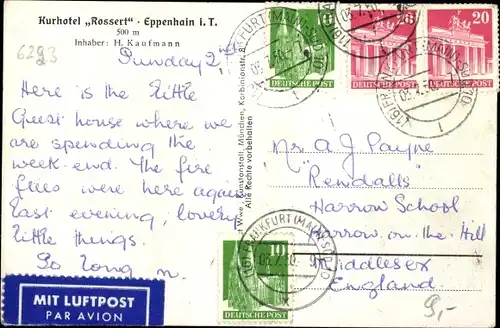 Kurhotel „Rossert“ · Eppenhain i. T.
500 m
Inhaber: H. Kaufmann
6293
Sunday 2nd
Here is the little
Guest house where we
are spending the
week-end. The fire
flies were here again
last evening, lovely
little things.
So long
MIT LUFTPOST
PAR AVION
Kunstanstalt, München, Korbinianstr. 8
Alle Rechte vorbehalten
10
DEUTSCHE POST
DEUTSCHE POST
20
DEUTSCHE POST
FRANKFURT (MAIN)
Mr A J Payne
"Rendalls"
Harrow School
Harrow on the Hill
Middlesex
England
10
DEUTSCHE POST
(16) FRANKFURT (MAIN)
9,-